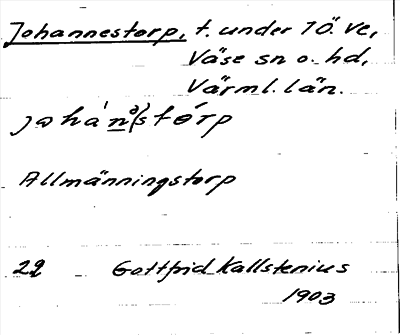 Johannestorp, t. under 10. Ve,
Väse sn o. hd,
Värml. län.
Allmänningstorp
29 Gottfrid Kallstenius
1903